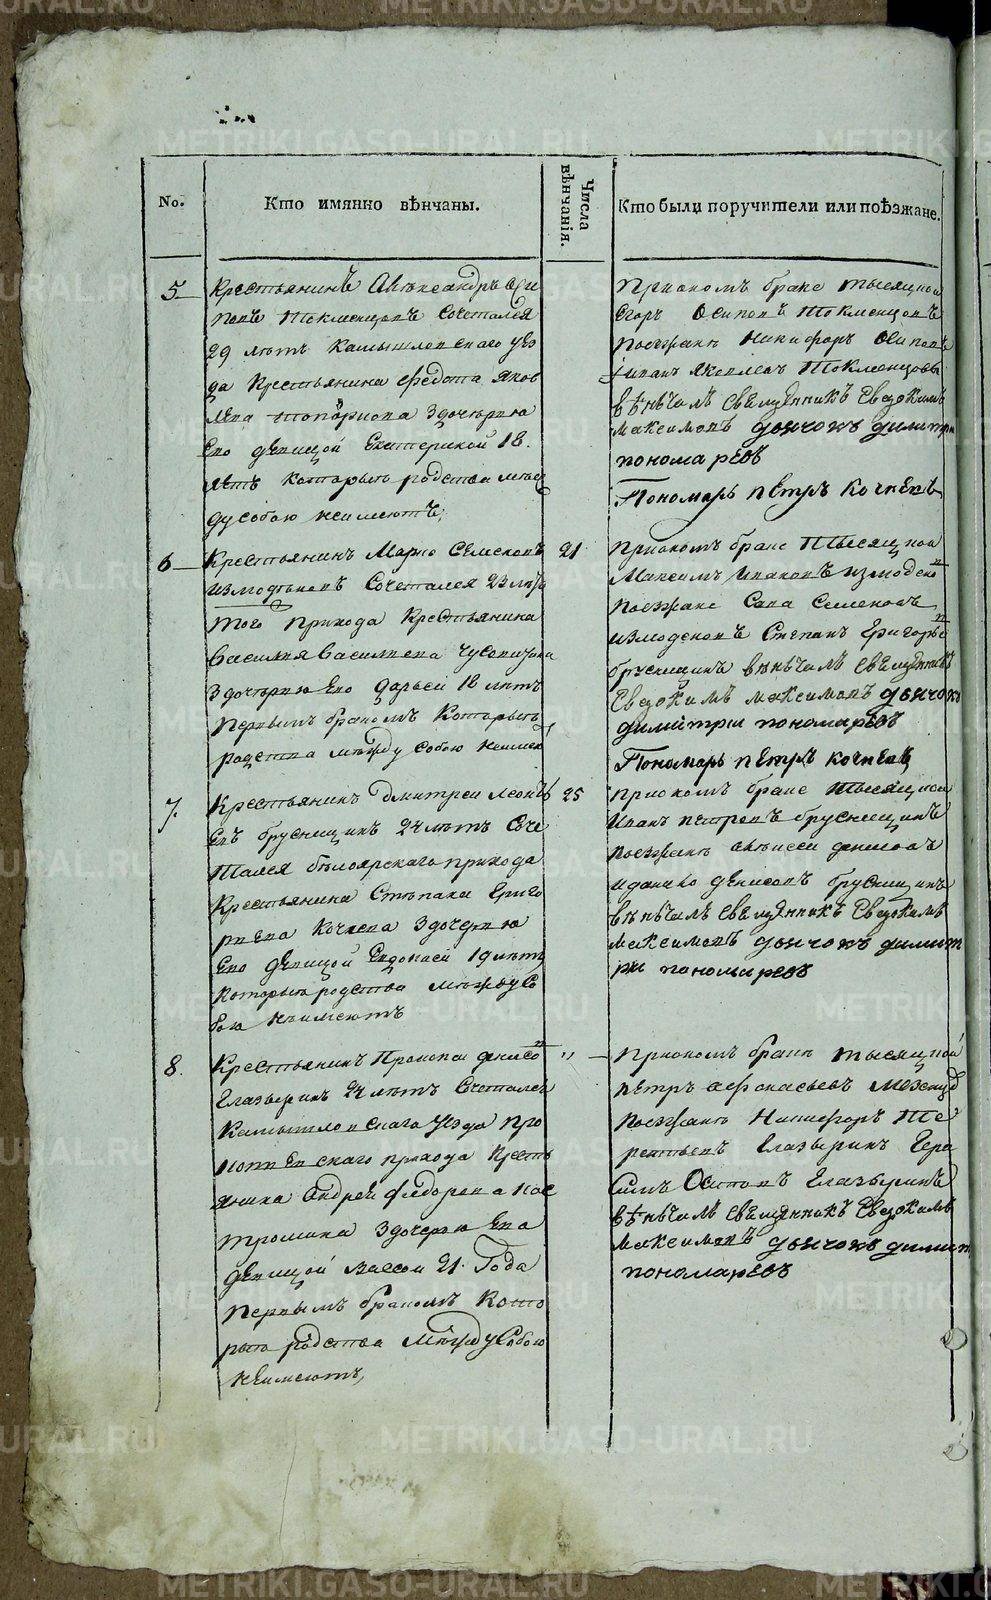 METRIKI.GASO-URAL.RU
No.
Кто имянно вѣнчаны.
Числа вѣнчанія.
Кто были поручители или поѣзжане.
5
Крестьянинъ Александръ Оси
повъ Токменцовъ Сочетался
29 лѣтъ Камышловскаго уез
да Крестьянина Федота Яков
лева здочерию
Ево девицой Екатериной 18.
летъ которыя родства межд
ду собою неимеютъ,
Приономъ браке тысяцкои
Егоръ Осиповъ Токменцовъ
Поезжане Никифоръ Осиповъ
Токменцовы
вѣнчалъ священникъ Евдокимъ
Максимовъ дьячокъ димитри
пономаревъ
Пономарь петръ кочневъ
6
Крестьянинъ Марко Семеновъ
Измоденовъ Сочетался 23 летъ
того прихода Крестьянина
Василия Васильева Чусовитина
здочерию Ево Дарьей 18 летъ
первымъ бракомъ которыя
родства между собою неимею
21
Приономъ браке тысяцкои
Максимъ Ивановъ Измодено
Поезжане Сава Семеновъ
Измоденовъ Степанъ Григорье
брусницинъ вѣнчалъ священникъ
Евдокимъ максимовъ дьячокъ
димитри пономаревъ
Пономарь петръ кочневъ
7.
Крестьянинъ Дмитреи Леонть
евъ брусницинъ 24 летъ Соче
тался белоярскаго прихода
Крестьянина Степана Григо
риева Кочнева здочерию
Ево девицой Евдокеей 19 летъ
которыя родства между со
бою неимеютъ
25
Приономъ браке тысяцкои
Иванъ петровъ брусницинъ
поезжане алексеи денисовъ
иданило денисовъ брусницинъ
вѣнчалъ священникъ Евдокимъ
максимовъ дьячокъ димит
ри пономаревъ
8.
Крестьянинъ Прокопеи денисо
Глазыринъ 24 летъ Сочетался
Камышловскаго уезда
прихода Кресть
янина Андрея Федорова Кос
тромина здочерию Ево
девицой Вассой 21. Года
первымъ бракомъ Кото
рыя родства между собою
неимеютъ,
"
Приономъ браке тысяцкой
петръ афонасьевъ
Поезжане Никифоръ Те
рентьевъ Глазыринъ Гера
симъ Осиповъ Глазыринъ
вѣнчалъ священникъ Евдокимъ
максимовъ дьячокъ димит
пономаревъ